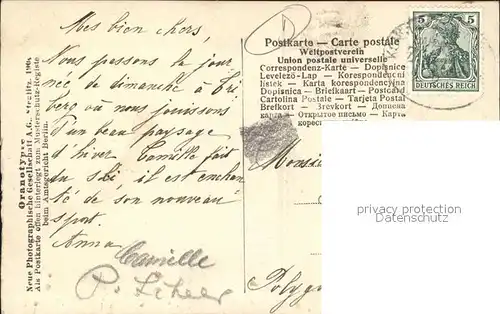 Mes bien chers,
Nous passons la jour
née de dimanche à Tri
berg où nous jouissons
d'un beau paysage
d'hiver. Camille fait
du ski, il est enchan
té de son nouveau
sport.
Anna
Camille
P.
Oranotypie
Neue Photographische Gesellschaft A.G., Steglitz. 190
Als Postkarte offen hinterlegt zum Musterschutz-Registe
beim Amtsgericht Berlin.
Postkarte – Carte postale
Weltpostverein
Union postale universelle
Correspondenz-Karte – Dopisnice
Levelező-Lap – Korespondencni
listek – Karta korespondencyjna
Dopisnica – Briefkaart – Postcard
Cartolina Postale – Tarjeta Postal
Brefkort – Brevkort – Дописна
карта – Открытое письмо – Карта
5 5
DEUTSCHES REICH
Monsi
Polyg
privacy protection
Datenschutz